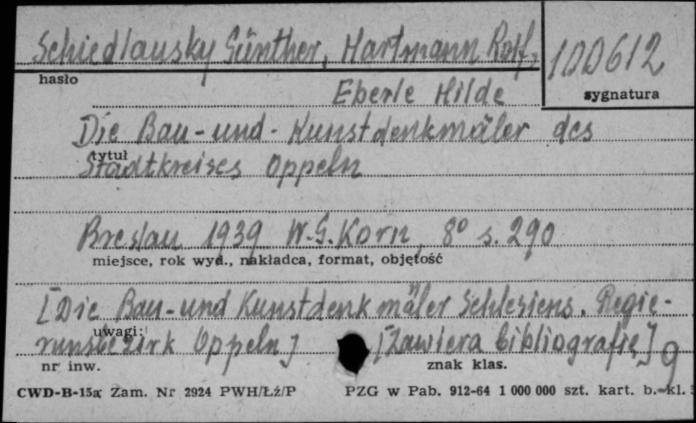 Schiedlausky Günther, Hartmann Rolf,
100612
hasło
sygnatura
Eberle Hilde
Die Bau-und-Kunstdenkmäler des
tytuł
Stadtkreises Oppeln
Breslau 1939 W.G.Korn, 8° s.290
miejsce, rok wyd., nakładca, format, objętość
[Die Bau-und Kunstdenkmäler Schlesiens. Regie-
uwagi:
runsbezirk Oppeln] [Zawiera bibliografię]
9
nr inw.
znak klas.
CWD-B-15a Zam. Nr 2924 PWH/Łź/P PZG w Pab. 912-64 1 000 000 szt. kart. b.-kl.